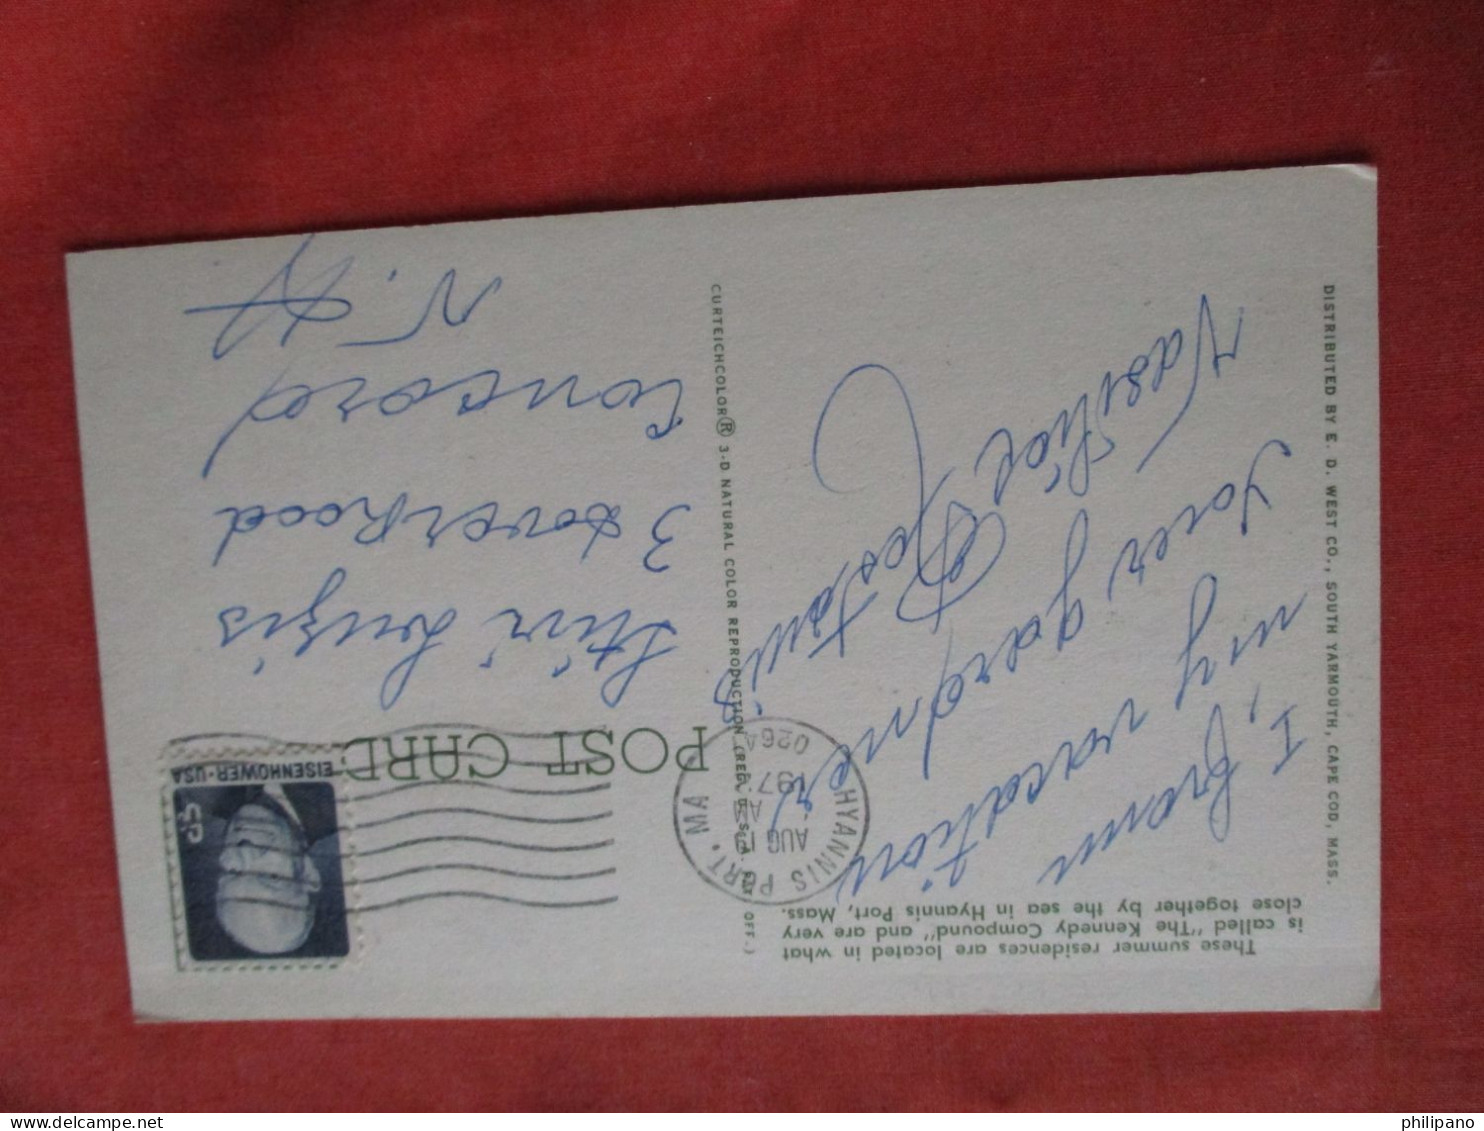 These summer residences are located in what
is called "The Kennedy Compound" and are very
close together by the sea in Hyannis Port, Mass.
I, from
my vacation
your gaerdner
Vasilios
DISTRIBUTED BY E. D. WEST CO., SOUTH YARMOUTH, CAPE COD, MASS.
CURTEICHCOLOR® 3-D NATURAL COLOR REPRODUCTION (REG. U.S.A. PAT. OFF.)
POST CARD
HYANNIS PORT. MA
AUG 13
AM
197
0264
EISENHOWER·USA
8c
3 Dover Rood
Concord
N. H
delcampe.net
philipano